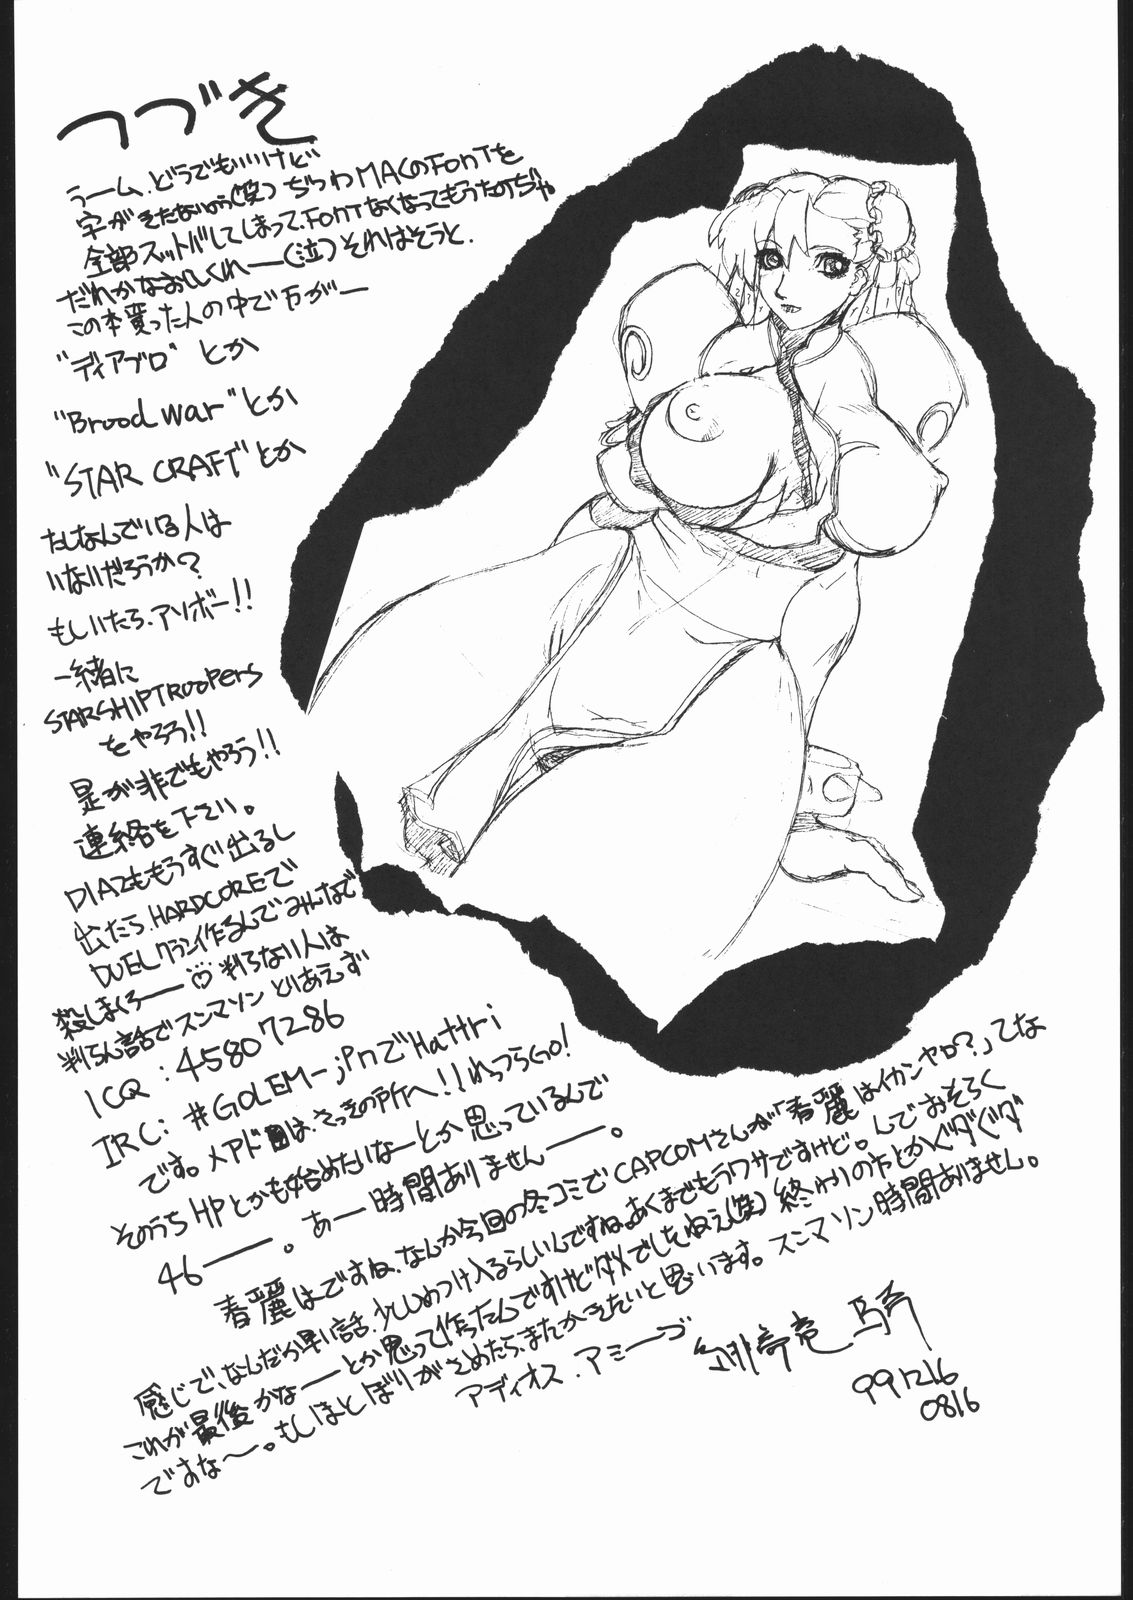 つづき
うーム、どうでもいいけど
字がきたないのう(笑)ぢつわMACのFONTを
全部スットバしてしまって、FONTなくなってもうたのぢゃ
だれかなおしくれー(泣)それはそうと、
この本買った人の中で万がー
"ディアブロ"とか
"Brood war"とか
"STAR CRAFT"とか
たしなんでいる人は
いないだろうか?
もしいたら、アソボー!!
一緒に
STARSHIPTROOPERS
をやろう!!
是が非でもやろう!!
連絡を下さい。
DIA2ももうすぐ出るし
出たら、HARDCOREで
DUELクラン作るんでみんなで
殺しまくろー♡判らない人は
判らん話でスンマソン とりあえず
ICQ:45807286
IRC:#GOLEM-jpnでHattri
です。メアドは、さっきの所へ!!れっつらGO!
そのうちHPとかも始めたいなーとか思っているんで
46ー。あー時間ありませんー。
春麗はですね、なんか今回の冬コミでCAPCOMさんが「春麗はイカンヤロ?」てな
感じで、なんだか早い話、少ししめつけ入るらしいんですね。あくまでもウワサですけど。んでおそらく
これが最後かなーとか思って作ったんですけどダメでしたねえ(笑)終わりの方とかグダグダ
ですな〜。もしほとぼりがさめたら、またかきたいと思います。スンマソン時間ありません。
アディオス、アミーゴ
991216
0816